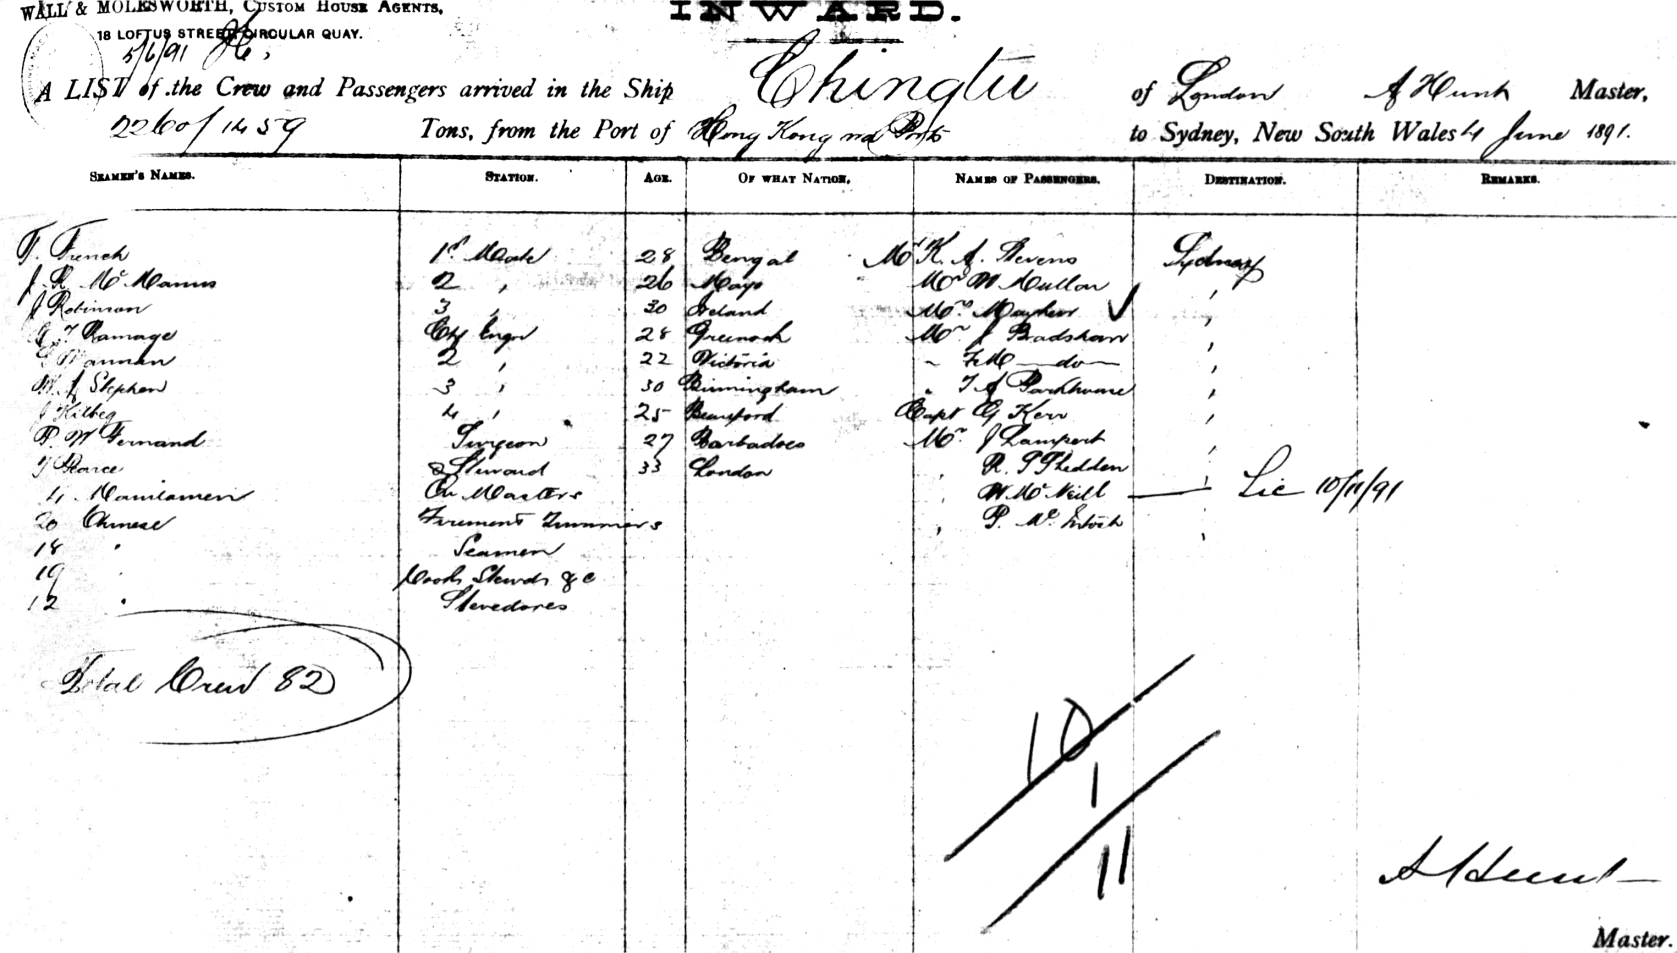 WALL & MOLESWORTH, CUSTOM HOUSE AGENTS,
18 LOFTUS STREET, CIRCULAR QUAY.
INWARD.
5/6/91
A LIST of the Crew and Passengers arrived in the Ship Chingtu of London A Hunt Master,
2260/1459 Tons, from the Port of Hong Kong Ports to Sydney, New South Wales 4 June 1891.
SEAMEN'S NAMES. STATION. AGE. OF WHAT NATION. NAMES OF PASSENGERS. DESTINATION. REMARKS.
F. French 1st Mate 28 Bengal Mr K. A. Stevens Sydney
J. R. McManus 2 " 26 Mayo Mr W Mullon "
J Robinson 3 " 30 Ireland Mrs Mayhew ✓ "
G T Ramage Chf Engr 28 Greenock Mr J Bradshaw "
Wannan 2 " 22 Victoria " do "
W. J Stephen 3 " 30 Birmingham " T A Parkhouse "
J Kilbeg 4 " 25 Capt G Kerr "
P. W Fernand Surgeon 27 Barbadoes Mr. J Lampert "
T Pearce Steward 33 London " R. S Shedden "
4 Manilamen Qr Masters " W McNeill — " Lic 10/11/91
20 Chinese Firemen & Trimmers " P. McIntosh "
18 " Seamen
19 " Cooks Stewds &c
12 " Stevedores
Total Crew 82
10
1
11
A Hunt
Master.